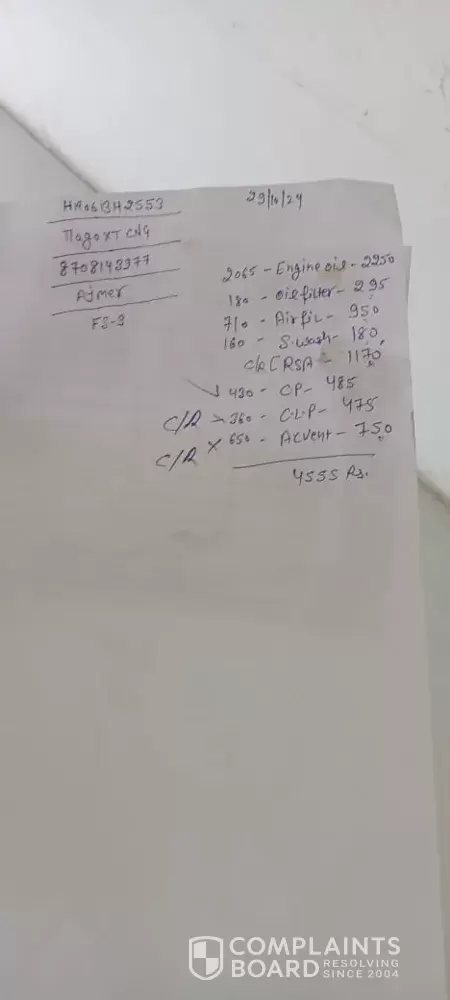 HR06BH2553
29/10/24
Magoxt CNG
8708143977
Ajmer
FS-3
2065 - Engine oil - 2250
180 - oil filter - 295
710 - Air fil - 950
160 - S.wash - 180
C/R [ RSA - 1170
430 - CP - 485
C/R 360 - C.L.P - 475
C/R x 650 - ACvent - 750
4555 Rs.
COMPLAINTS
BOARD RESOLVING
SINCE 2004